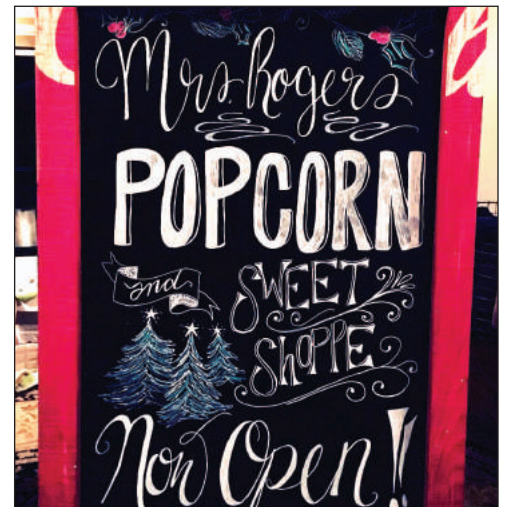 Mrs. Rogers
POPCORN
and
SWEET
ShOPPE
Now Open!!